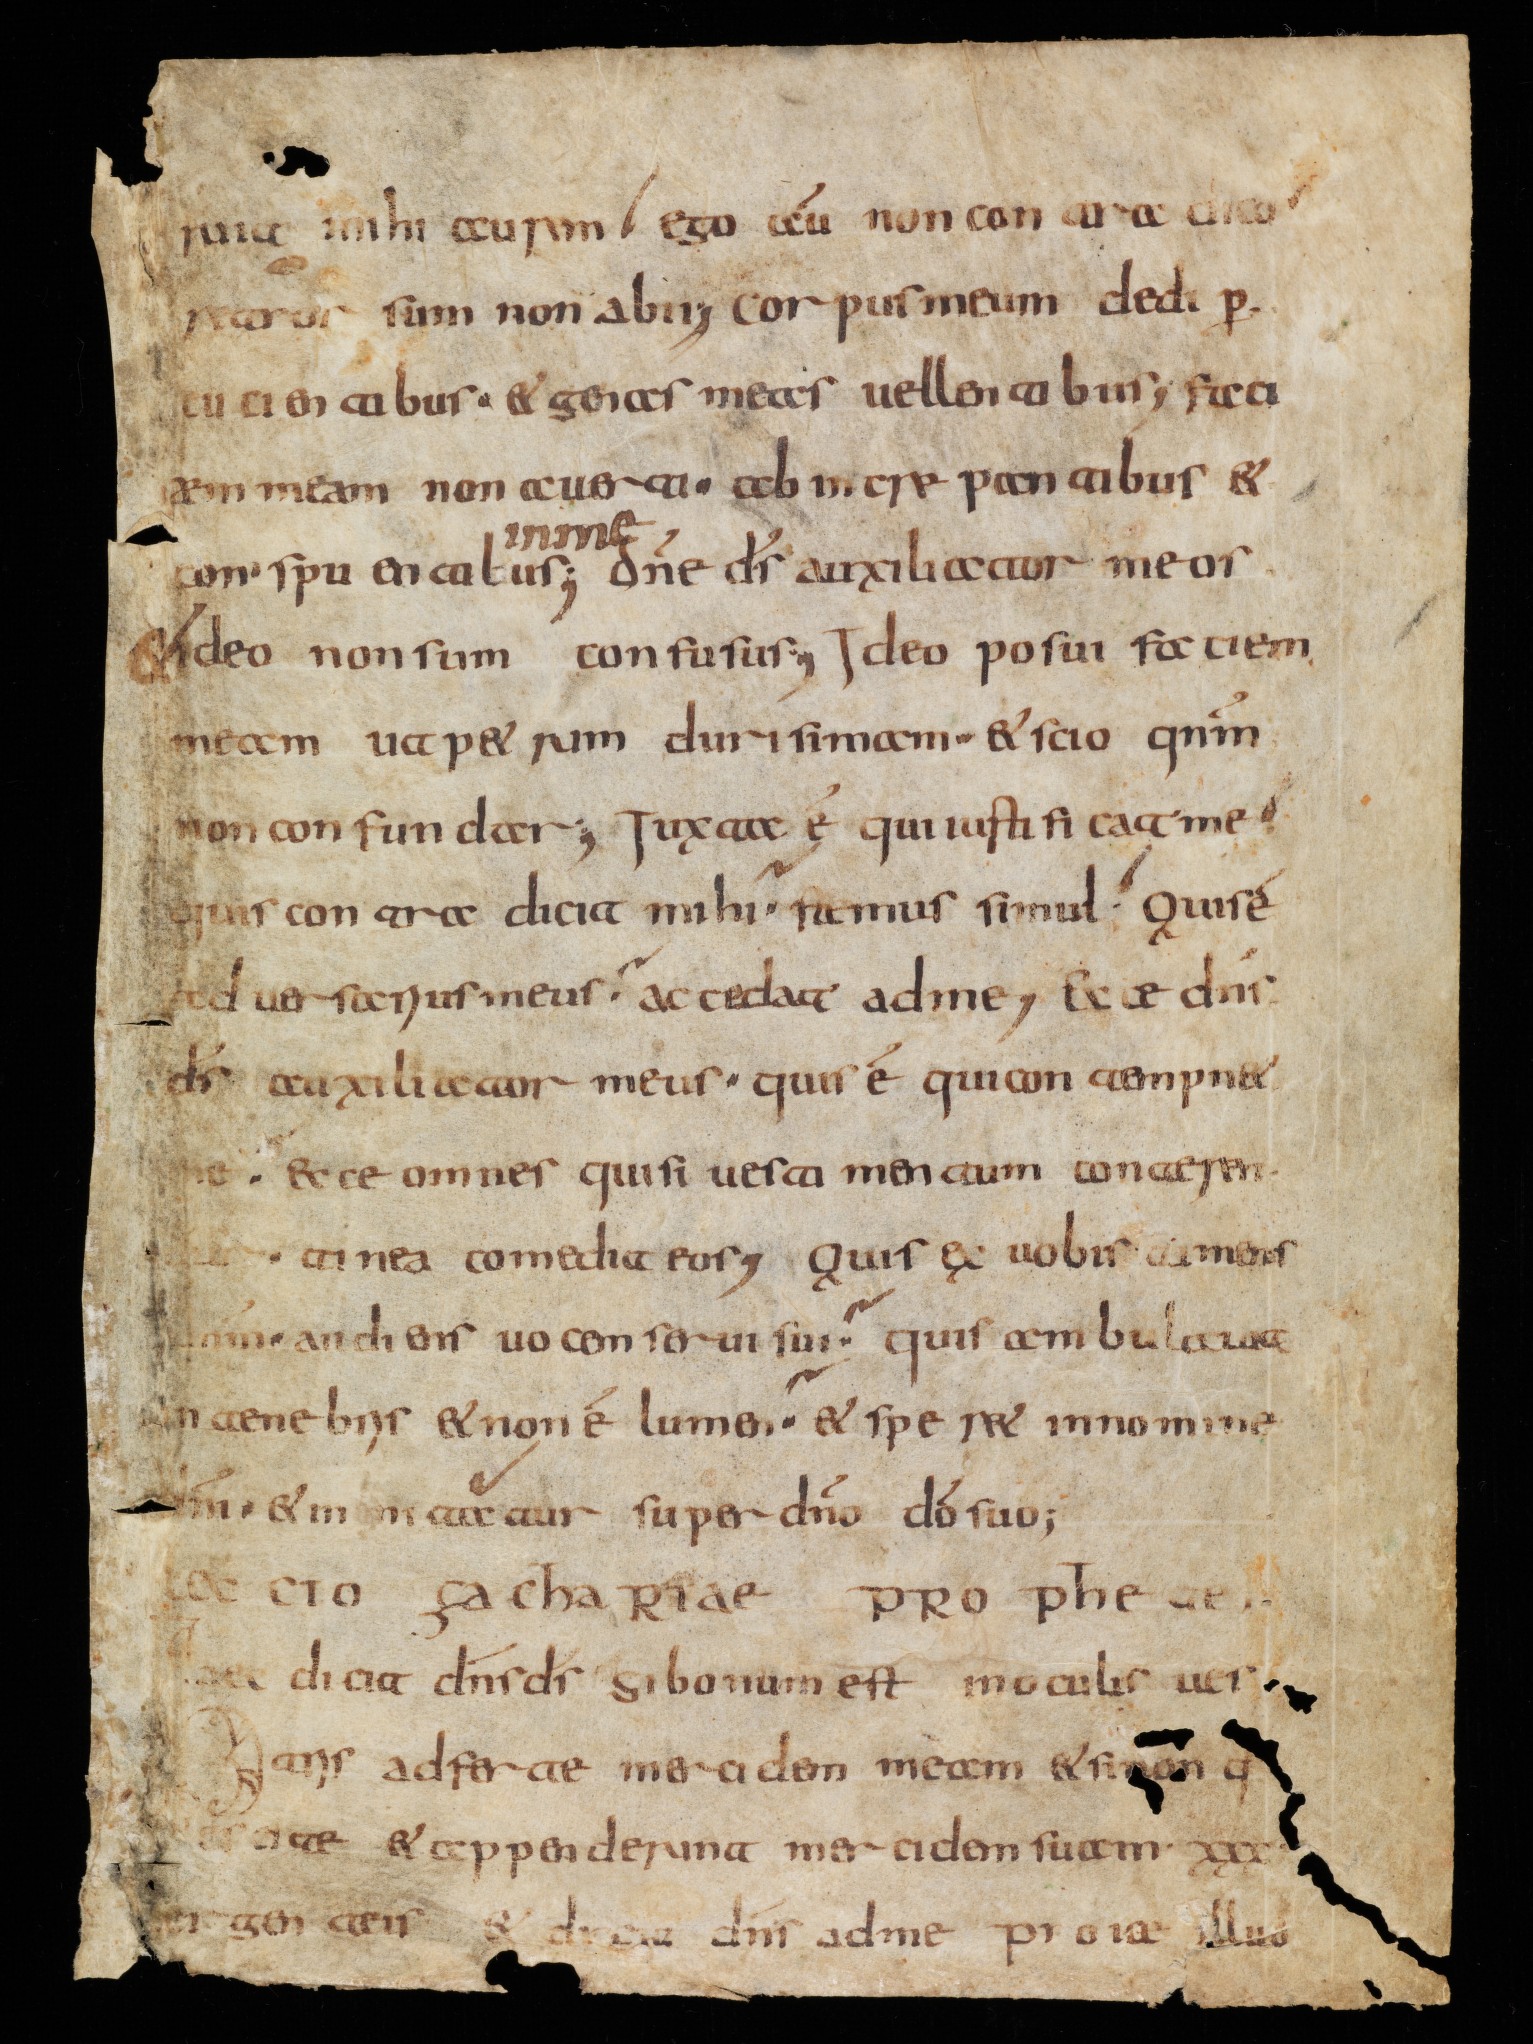 ruit mihi aurem ego aū non contra dico
retror sum non abii; Corpus meum dedi p̱
cucientibus · & genas meas uellentibus; faci
em meam non auerti · ab increpantibus &
in me
conspuentibus; Dn̄e ds̄ auxiliator meos
& ideo non sum confusus; Ideo posui faciem
meam ut petrum durisimam · & scio qnm̄
non confundar; Juxta ē qui iustificat me
quis contra dicit mihi · stemus simul · Quis ē
aduersarius meus · accedat ad me, Ecce dn̄s
ds̄ auxiliator meus · quis ē qui contempn&
me · ecce omnes qusi uestimentum conteren
· tinea comedit eos; Quis ex uobis timens
dnm̄ · audiens uocem serui sui · quis ambulauit
in tenebris & non ē lumen · & sper& in nomine
dn̄i · & innitatur super dn̄o dō suo;
Lectio Zachariae prophetae
Haec dicit dn̄s ds̄ Si bonum est in oculis ues
tris adferte mercidem meam & si non q
iescite & appenderunt mercidem suam · xxx
argenteis & dixit dn̄s ad me proice illud